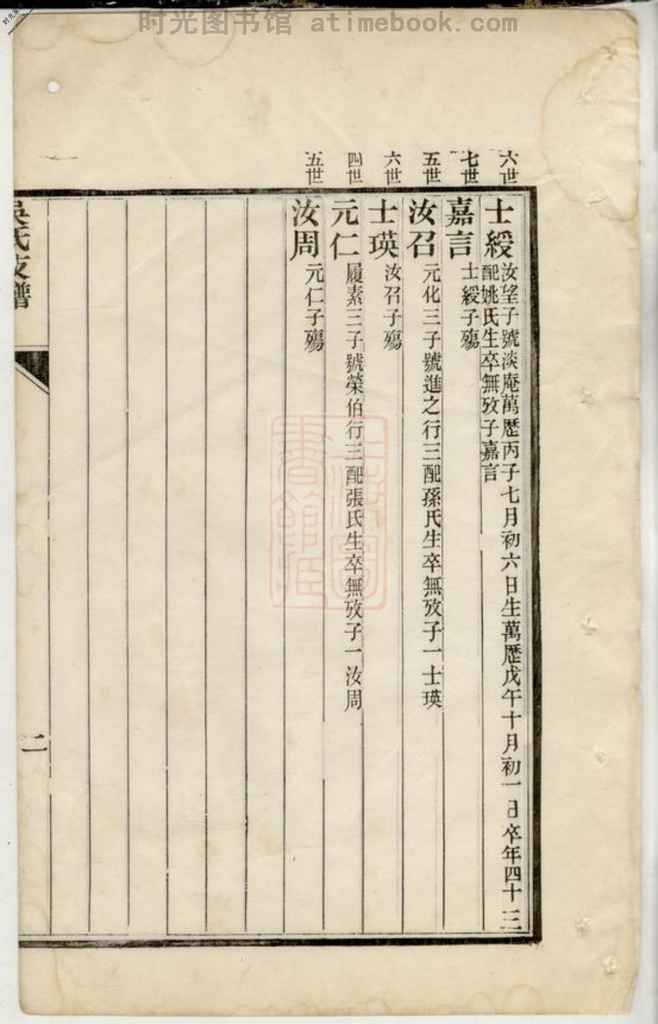 时光图书馆 atimebook.com
六世
士綬 汝望子號淡庵萬歷丙子七月初六日生萬歷戊午十月初一日卒年四十三
配姚氏生卒無攷子嘉言
七世
嘉言 士綬子殤
五世
汝召 元化三子號進之行三配孫氏生卒無攷子一士瑛
六世
士瑛 汝召子殤
四世
元仁 履素三子號榮伯行三配張氏生卒無攷子一汝周
五世
汝周 元仁子殤
吳氏支譜
二